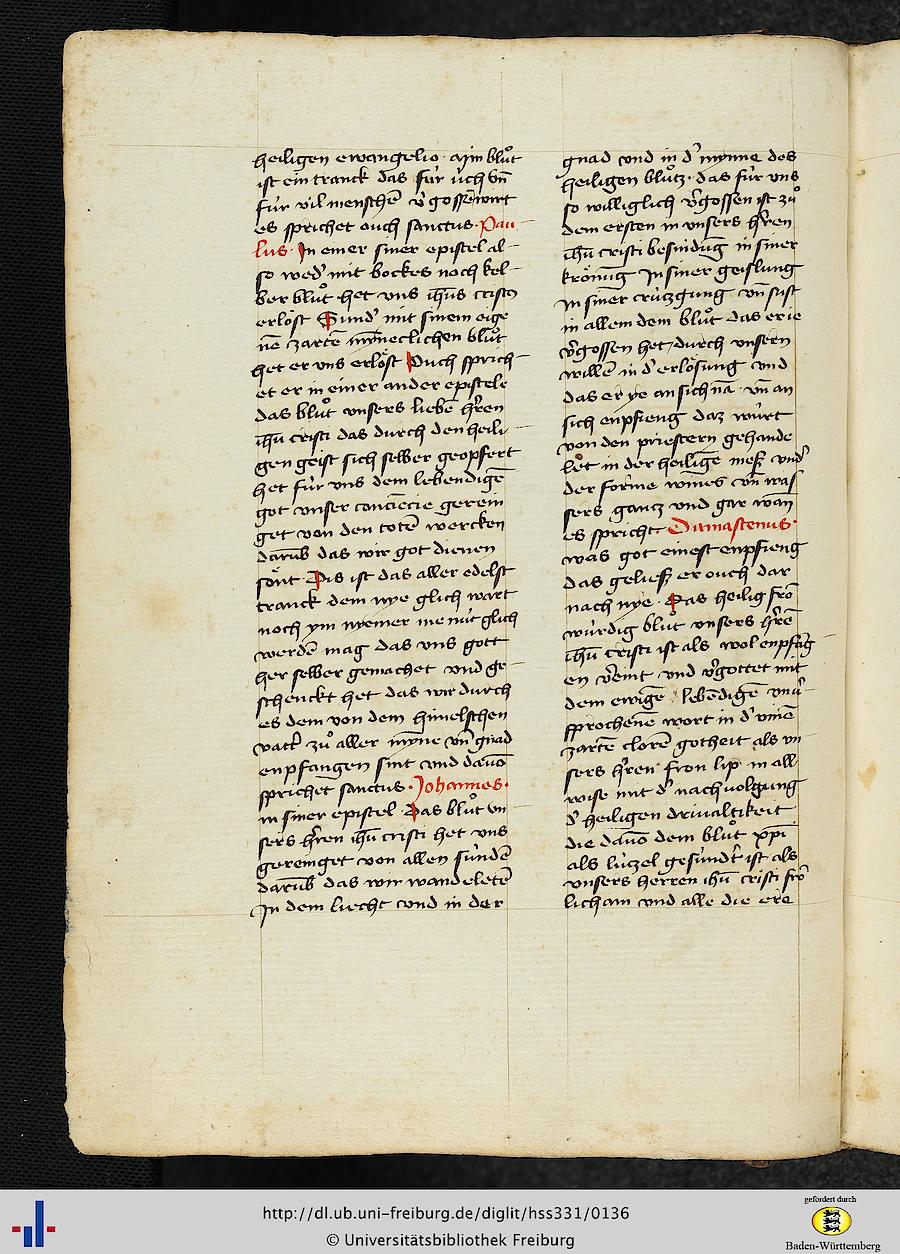 heiligen ewangelio · Min blůt
ist ein tranck das für üch vn̄
für vil menschē v̓gossē wirt
es sprichet ouch sanctus · Pau
lus · In einer siner epistel al-
so wed̓ mit bockes noch kel-
ber blůt het vns ih̄us cristus
erlöst Sund̓ mit sinem eige
nē zartē mȳneclichen blůt
het er vns erlöst Ouch sprich-
et er in einer ander epistele
das blůt vnsers liebē h̓ren
ih̄u cristi das durch den heili-
gen geist sich selber geopfert
het für vns dem lebendigē
got vnser conciēcie gerein
get von den totē wercken
darūb das wir got dienen
sönt Dis ist das aller edelst
tranck dem nye glich wart
noch ym nyemer me müt glich
werdē mag das vns gott
her selber gemachet vnd ge-
schenckt het das wir durch
es dem von dem himelschen
vatt̓ zů aller mȳne vn̄ gnad
enpfangen sint vnd dauō
sprichet sanctus · Johannes ·
in siner epistel Das blůt vn
sers h̓ren ih̄u cristi het vns
gereinget von allen sündē
darūb das wir wandeletē
In dem liecht vnd in der
gnad vnd in d̓ mynne des
heiligen blůtz · das für vns
so williglich v̓gossen ist zů
dem ersten in vnsers h̓ren
ih̄u cristi besnidūg in siner
krönūg In siner geislung
in siner crützgung vn̄ sust
in allem dem blůt das er ie
v̓gossen het durch vnsern
willē in d̓ erlösung vnd
das er ye an sich nā vn̄ an
sich enpfieng daz würt
von den priestern gehande
let in der heiligē meß vnd̓
der forme wines vn̄ was
sers gantz vnd gar wan̄
es spricht Damastenus ·
was got einest enpfieng
das geließ er ouch dar
nach nye · Das heilig frō
würdig blůt vnsers h̓rē
ih̄u cristi ist als wol enpfāg
en v̓eint vnd v̓gottet mit
dem ewigē lebēdigē vnū-
sprochenē wort in d̓ vinē
zartē clorē gotheit als vn
sers h̓ren fron lip in all
wise mit d̓ nachuolgung
d̓ heiligen driualtikeit
die dauō dem blůt xpi
als lützel gesündt̓ ist als
vnsers herren ih̄u cristi frō
licham vnd alle die ere
http://dl.ub.uni-freiburg.de/diglit/hss331/0136
© Universitätsbibliothek Freiburg
gefördert durch
Baden-Württemberg